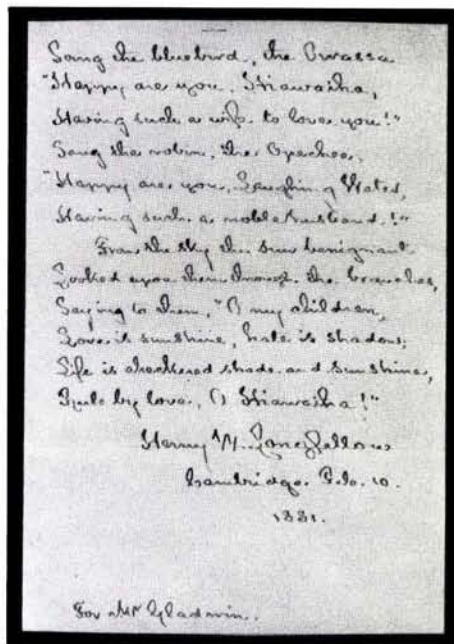 Sang the bluebird, the Owaissa
"Happy are you, Hiawatha,
Having such a wife to love you!"
Sang the robin, the Opechee,
"Happy are you, Laughing Water,
Having such a noble husband!"
From the sky the sun benignant
Looked upon them through the branches,
Saying to them, "O my children,
Love is sunshine, hate is shadow,
Life is checkered shade and sunshine,
Rule by love, O Hiawatha!"
Henry W. Longfellow
Cambridge. Feb. 10.
1881.
For Mr Gladwin.